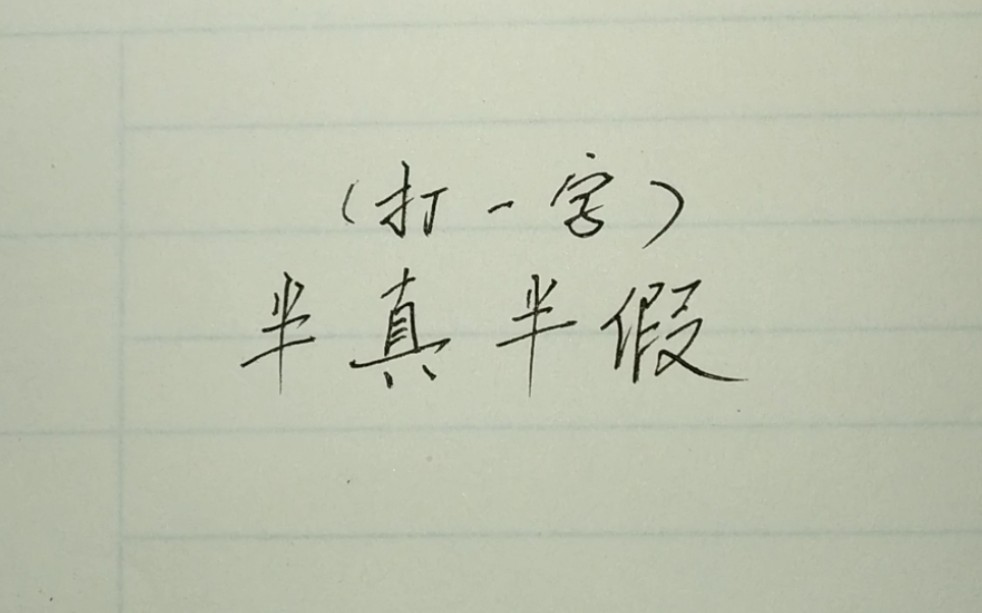 （打一字）
半真半假